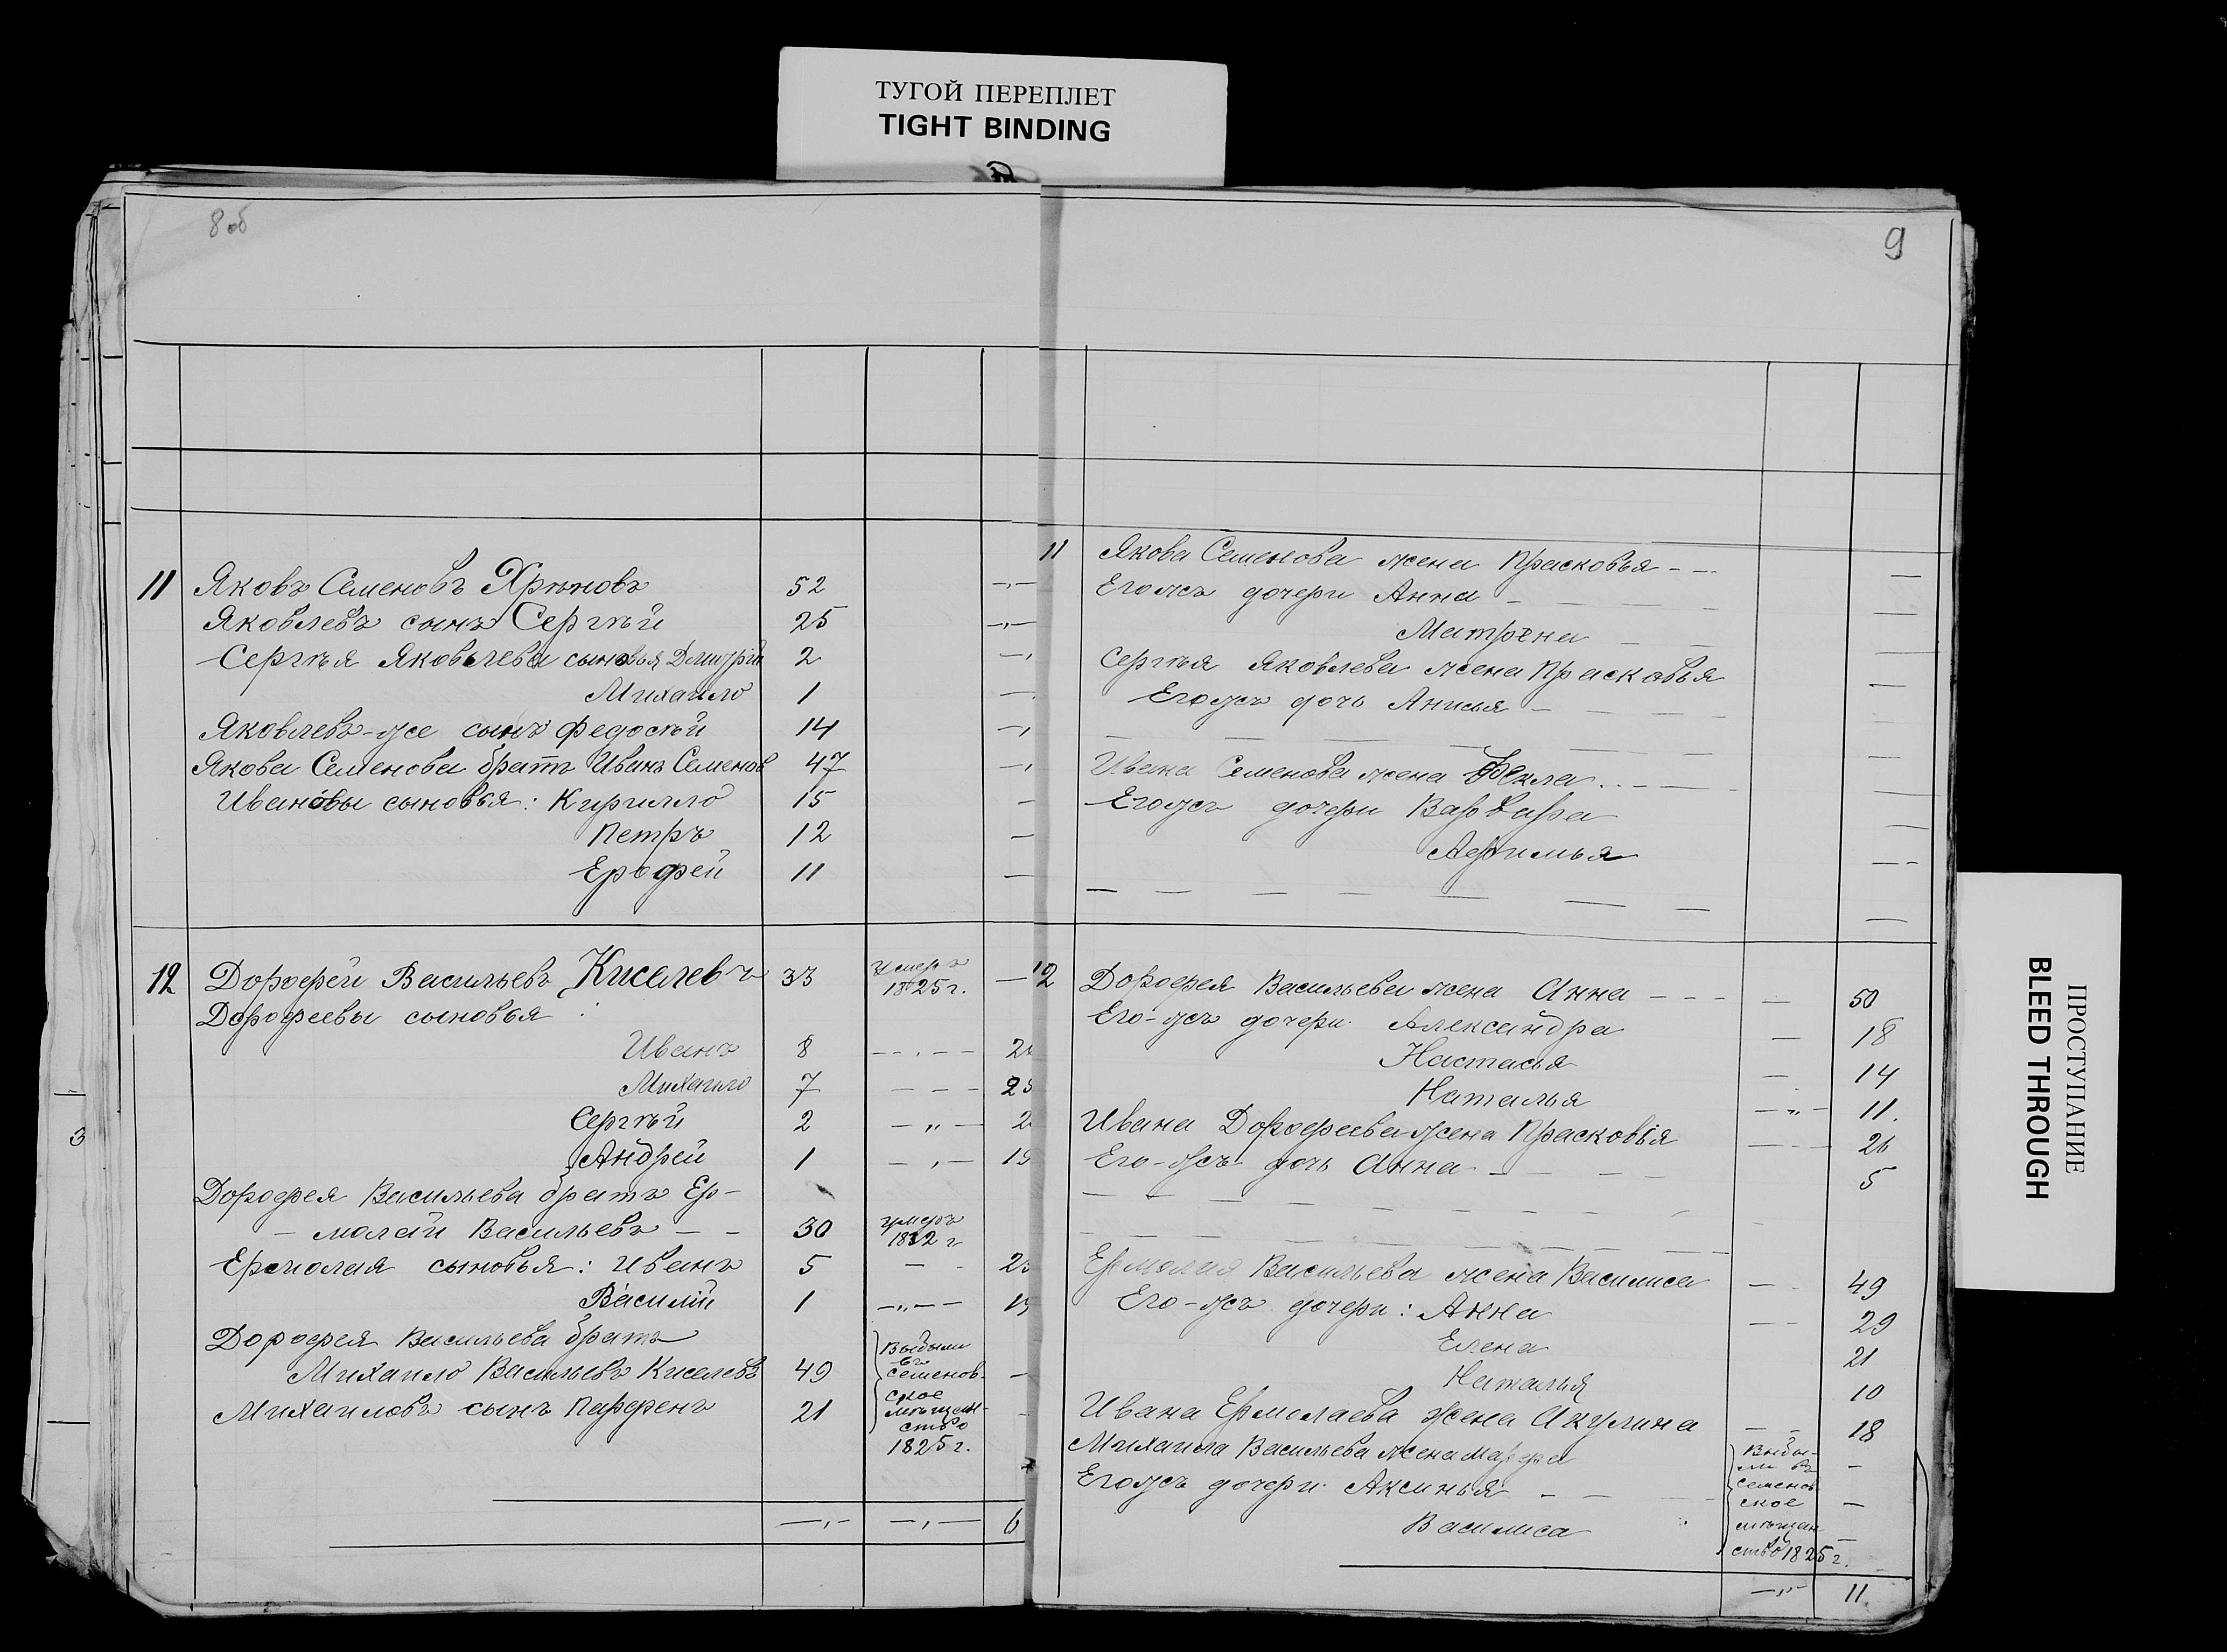 ТУГОЙ ПЕРЕПЛЕТ
TIGHT BINDING
8 об
11 Яковъ Семеновъ Хрѣновъ 52 -„-
Яковлевъ сынъ Сергѣй 25 -„-
Сергѣя Яковлева сыновья Дмитрій 2
Михайло 1
Яковлевъ-же сынъ Федосѣй 14
Якова Семенова братъ Иванъ Семенов 47
Ивановы сыновья: Кирилло 15
Петръ 12
Ерофей 11
12 Дорофей Васильевъ Киселевъ 33 умеръ 1825 г. —
Дорофеевы сыновья:
Иванъ 8
Михайло 7
Сергѣй 2 -„-
Андрей 1 -„- 19
Дорофея Васильева братъ Ер-
молай Васильевъ 30 умеръ 1832 г.
Ермолая сыновья: Иванъ 5
Василій 1 -„-
Дорофея Васильева братъ
Михайло Васильевъ Киселевъ 49
Михайловъ сынъ Парфенъ 21
Выбыли
въ
Семенов-
ское
мѣщан-
ство
1825 г.
-„- -„- 6
9
11 Якова Семенова жена Прасковья
Егожъ дочери Анна
Матрена
Сергѣя Яковлева жена Прасковья
Егожъ дочь Анисья
Ивана Семенова жена Фекла
Егожъ дочери Варвара
Афимья
12 Дорофея Васильева жена Анна — 50
Его-жъ дочери Александра — 18
Настасья — 14
Наталья -„- 11.
Ивана Дорофеева жена Прасковія — 26
Его-жъ дочь Анна 5
Ермолая Васильева жена Василиса — 49
Его-жъ дочери: Анна — 29
Елена 21
Наталья 10
Ивана Ермолаева жена Акулина — 18
Михаила Васильева жена Марфа —
Егожъ дочери Аксинья —
Василиса —
Выбы-
ли въ
Семенов
ское
мѣщан
ство 1825 г.
-„- 11
ПРОСТУПАНИЕ
BLEED THROUGH
3